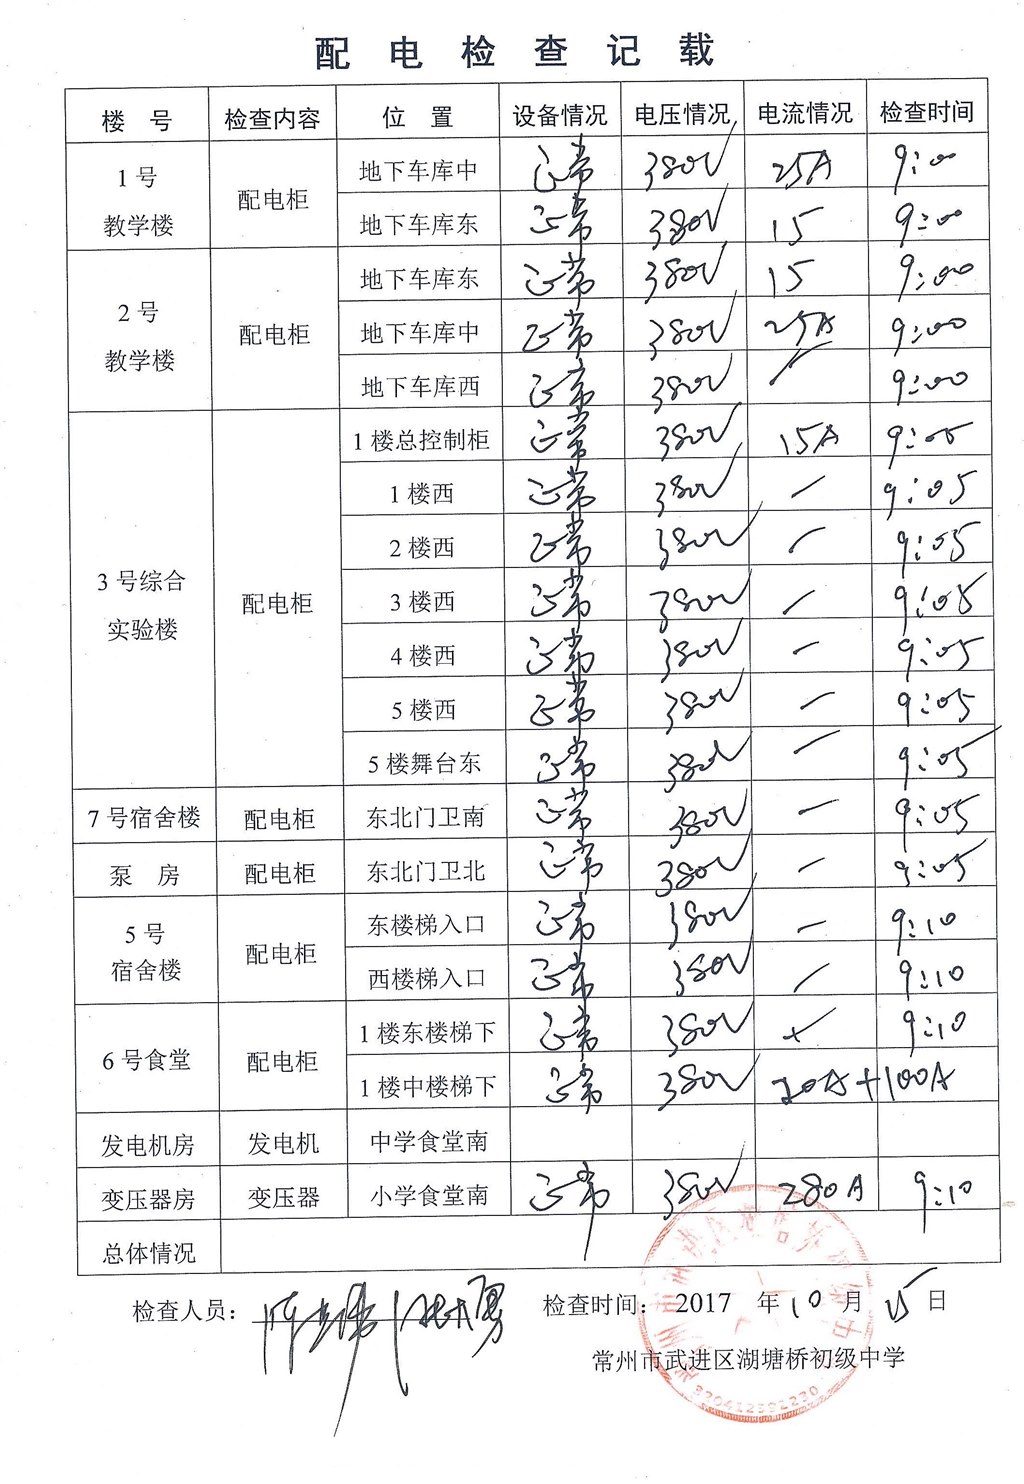 配电检查记载
楼 号 检查内容 位 置 设备情况 电压情况 电流情况 检查时间
1号 教学楼 配电柜 地下车库中 正常 380V 25A 9:00
地下车库东 正常 380V 15 9:00
2号 教学楼 配电柜 地下车库东 正常 380V 15 9:00
地下车库中 正常 380V 25A 9:00
地下车库西 正常 380V / 9:00
3号综合 实验楼 配电柜 1楼总控制柜 正常 380V 15A 9:05
1楼西 正常 380V / 9:05
2楼西 正常 380V / 9:05
3楼西 正常 380V / 9:05
4楼西 正常 380V / 9:05
5楼西 正常 380V / 9:05
5楼舞台东 正常 380V / 9:05
7号宿舍楼 配电柜 东北门卫南 正常 380V / 9:05
泵 房 配电柜 东北门卫北 正常 380V / 9:05
5号 宿舍楼 配电柜 东楼梯入口 正常 380V / 9:10
西楼梯入口 正常 380V / 9:10
6号食堂 配电柜 1楼东楼梯下 正常 380V 9:10
1楼中楼梯下 正常 380V 20A+100A
发电机房 发电机 中学食堂南
变压器房 变压器 小学食堂南 正常 380V 280A 9:10
总体情况
检查人员: 检查时间: 2017 年 10 月 15 日
常州市武进区湖塘桥初级中学